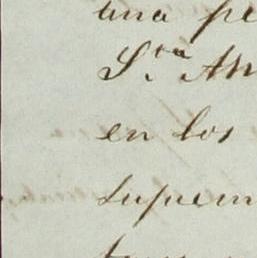 una pe
S.ta An
en los
suprem